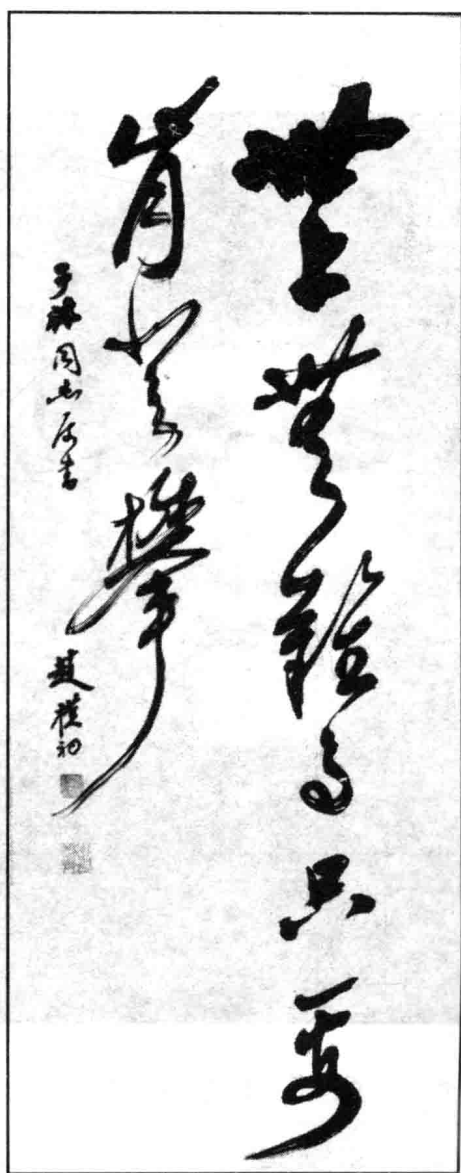 世上無難事只要
肯登攀
子林同志属書
趙樸初